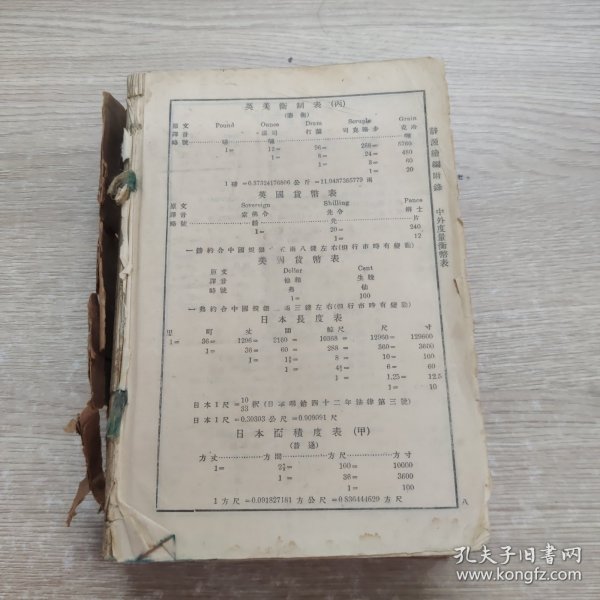 英美衡制表 (丙)
(藥衡)
原文 Pound Ounce Dram Scruple Grain
譯音 溫司 打蘭 司克路步 克冷
略號
1= 12= 96= 288= 5760
1= 8= 24= 480
1= 3= 60
1= 20
1磅=0.37324176806公斤=11.9437365779兩
英國貨幣表
原文 Sovereign Shilling Pence
譯音 先令 辨士
略號 鎊 先 片
1= 20= 240
1= 12
美國貨幣表
原文 Dollar Cent
譯音 他拉 生脫
略號 弗 仙
1= 100
日本長度表
里 町 丈 間 鯨尺 尺 寸
1= 36= 1296= 2160= 10368= 12960= 129600
1= 36= 60= 288= 360= 3600
8= 10= 100
6= 60
1= 1.25= 12.5
1= 10
日本1尺=10/33粎(日本明治四十二年法律第三號)
日本1尺=0.30303公尺=0.909091尺
日本面積度表 (甲)
(普通)
方丈 方間 方尺 方寸
1= 100= 10000
1= 36= 3600
1= 100
1方尺=0.091827181方公尺=0.836444629方尺
辭源續編附錄 中外度量衡幣表
A
孔夫子旧书网
www.kongfz.com